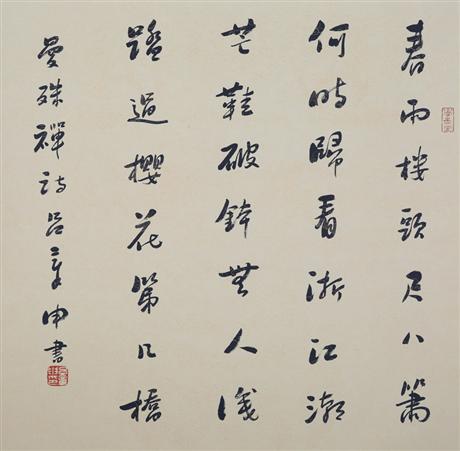 春雨樓頭尺八簫
何時歸看浙江潮
芒鞋破鉢無人識
踏過櫻花第几橋
曼殊禪詩呂章申書